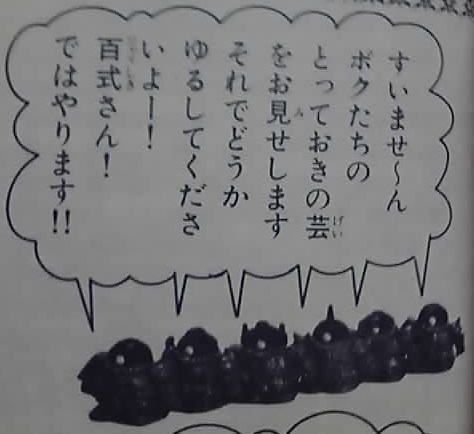 すいませ〜ん
ボクたちの
とっておきの芸
をお見せします
それでどうか
ゆるしてくださ
いよー！
百式さん！
ではやります!!